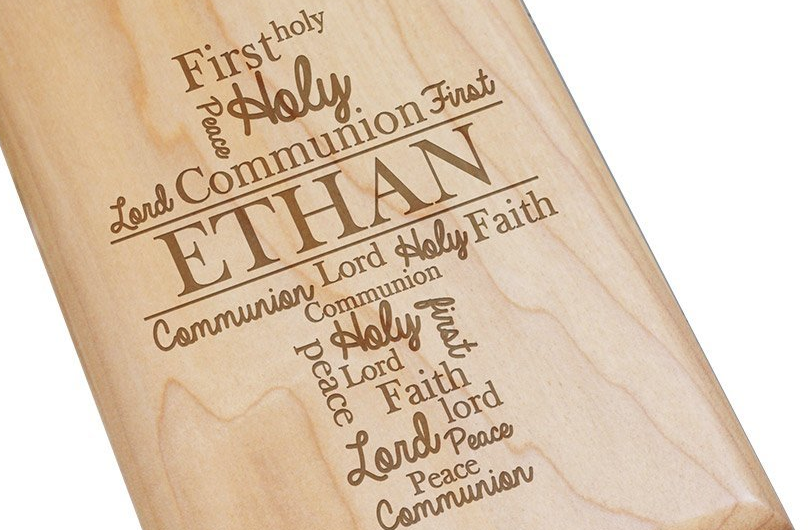 First holy
Peace Holy
Lord Communion First
ETHAN
Communion Lord Holy Faith
Communion
Holy first
peace Lord
Faith
lord
Lord Peace
Peace
Communion